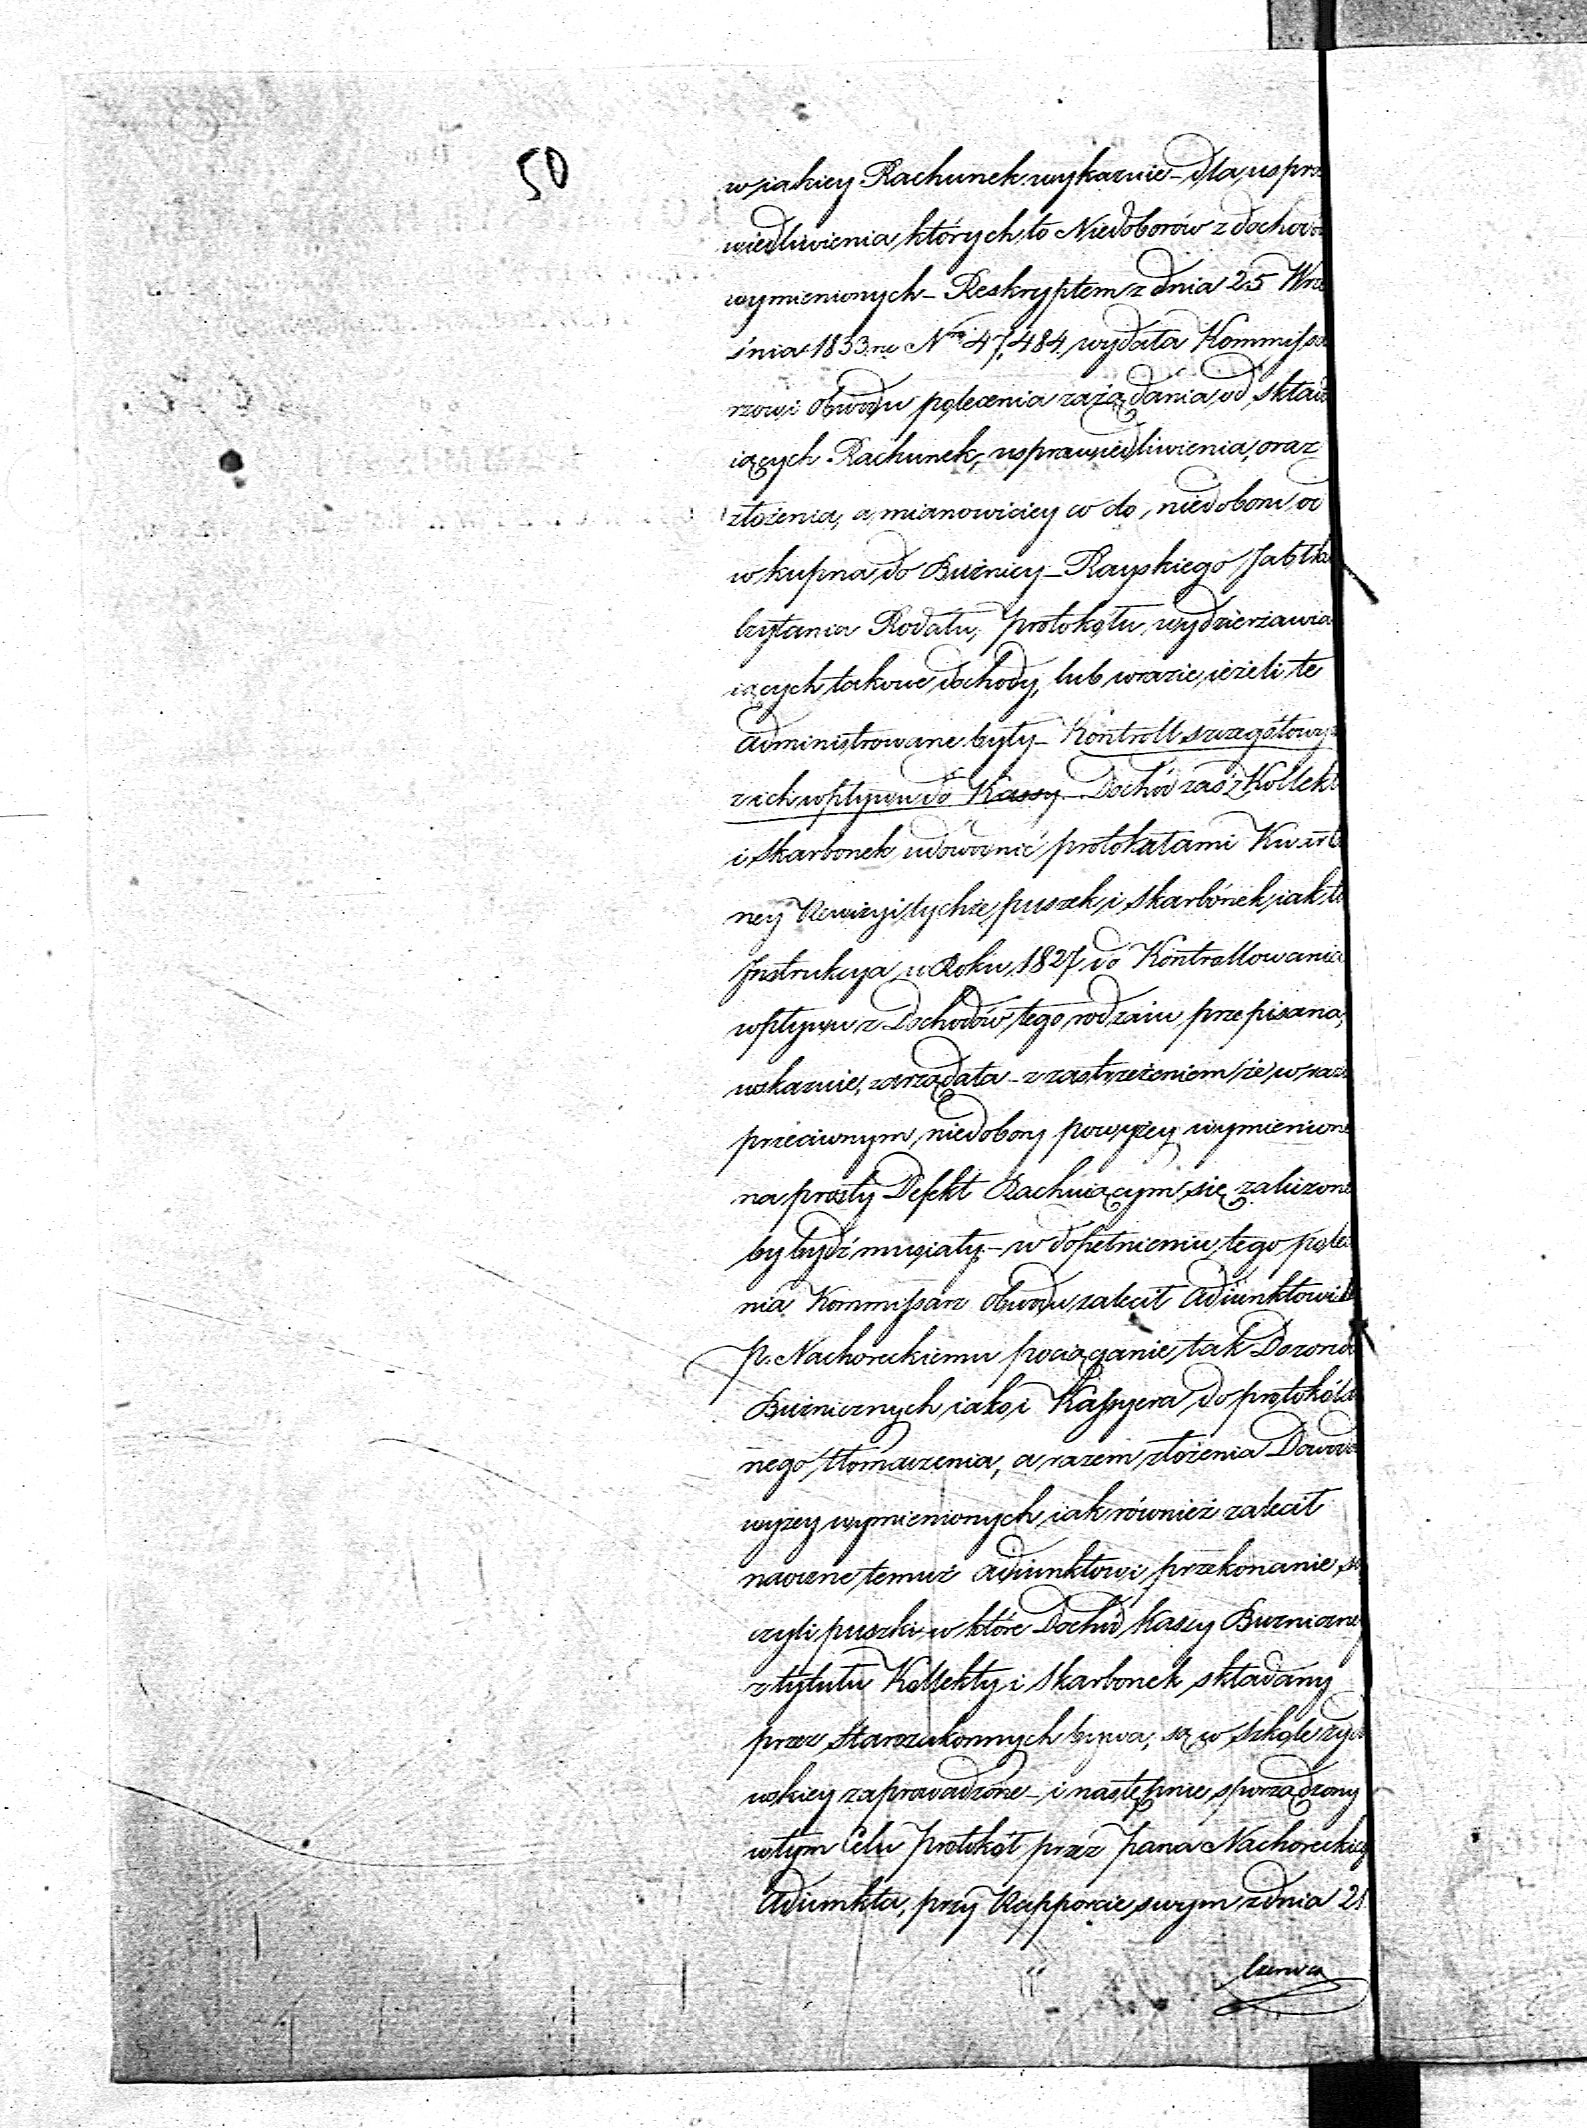 50
w iakiey Rachunek wykazuie – dla uspra
wiedliwienia których to Niedoborów z dochodó
wymienionych – Reskryptem z dnia 25 Wrze
śnia 1833 r. Nro 47,484 wydała Kommissa
rzowi Obwodu polecenia zażądania od składa
iących Rachunek, usprawiedliwienia, oraz
złożenia, a mianowiciey co do, niedoboru od
wkupna do Bużnicy – Rayskiego Jabłka
czytania Rodału, protokołu wydzierżawia
iących takowe dochody, lub w razie ieżeli te
administrowane były – Kontroll szczegółowych
z ich wpływu do Kassy – Dochód zaś z Kollekt
i Skarbonek udowodnić protokołami Kwartal
ney Rewizyi tychże puszek i Skarbónek, iak to
Instrukcya w Roku 1827 do Kontrollowania
wpływu z Dochodów tego rodzaiu przepisana,
wskazuie, zarządała – z zastrzeżeniem że w razie
przeciwnym, niedobory powyżey wymienione
na prosty Defekt Rachuiącym się zaliczone
by bydź musiały – w dopełnieniu tego polece
nia Kommissarz Obwodu zalecił Adiunktowi
p. Nachoreckiemu pociąganie tak Dozoró
Bużnicznych iako i Kassyera do protokólar
nego tłómaczenia, a razem złożenia Dowodó
wyżey wymienionych iak również zalecił
naoczne temuż Adiunktowi przekonanie się
czyli puszki w które Dochód Kassy Bużniczney
z tytułu Kollekty i Skarbonek składany
przez Starozakonnych bywa, są w szkole żydo
wskiey zaprowadzone – i następnie sporządzony
w tym Celu protokół przez pana Nachoreckiego
Adiunkta, przy Rapporcie swym z dnia 28
Czerwca